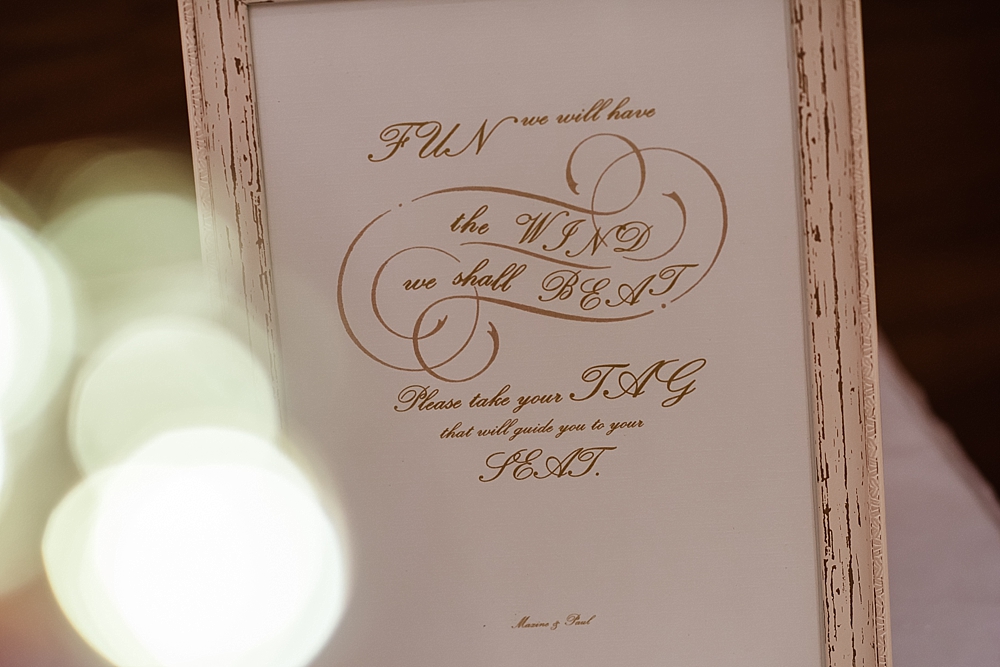 FUN we will have
the WIND
we shall BEAT
Please take your TAG
that will guide you to your
SEAT.
Maxine & Paul